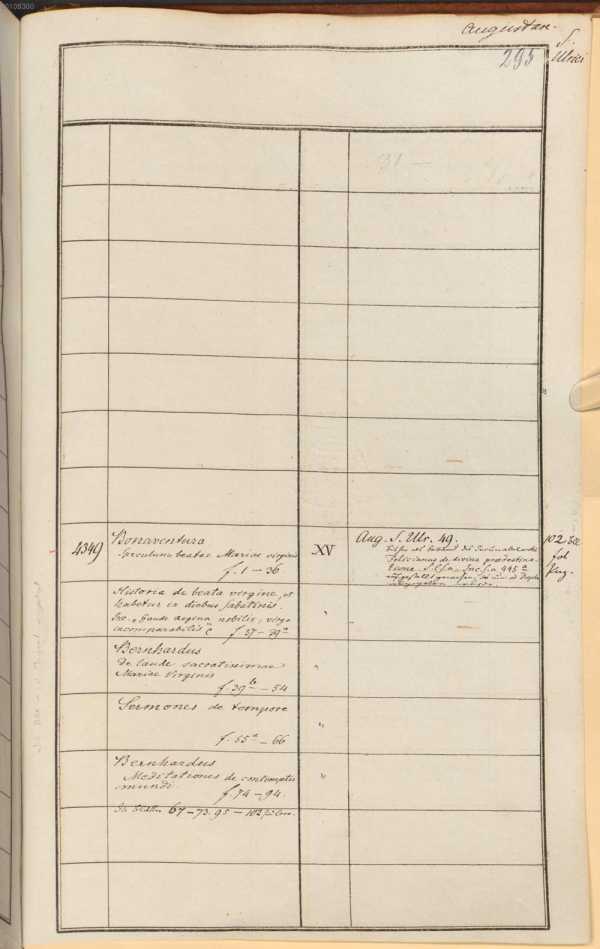 Augustan.
S.
Ulrici
295
4349
Bonaventura
Speculum beatae Mariae virginis
f. 1 – 36
XV
Aug. S. Ulr. 49.
Felicianus de divina praedestina-
tione. S. l. s. a. Inc. s. a. 445 a
102
fol
Historia de beata virgine, ut
habetur in diebus sabatinis.
Inc. Gaude regina nobilis, virgo
incomparabilis
f. 37 – 39 a
"
Bernhardus
De laude sacratissimae
Mariae Virginis
f. 39 b – 54
"
Sermones de tempore
f. 55 a – 66
"
Bernhardus
Meditationes de contemptu
mundi.
f. 74 – 94.
"
67 – 73. 95 – 102